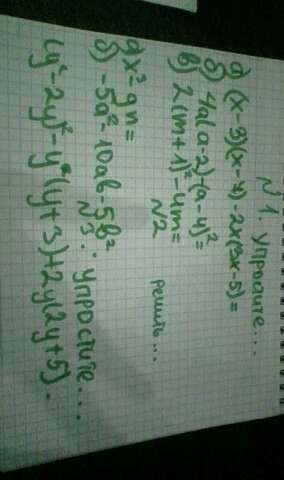 №1. упросите...
а) (x-3)(x-7)-2x(3x-5)=
б) 4a(a-2)-(a-4)²=
в) 2(m+1)²-4m=
№2 решить...
а) x³-9n=
б) -5a²-10ab-5b²
№3: упростите...
(y²-2y)²-y²(y+3)+2y(2y+5).